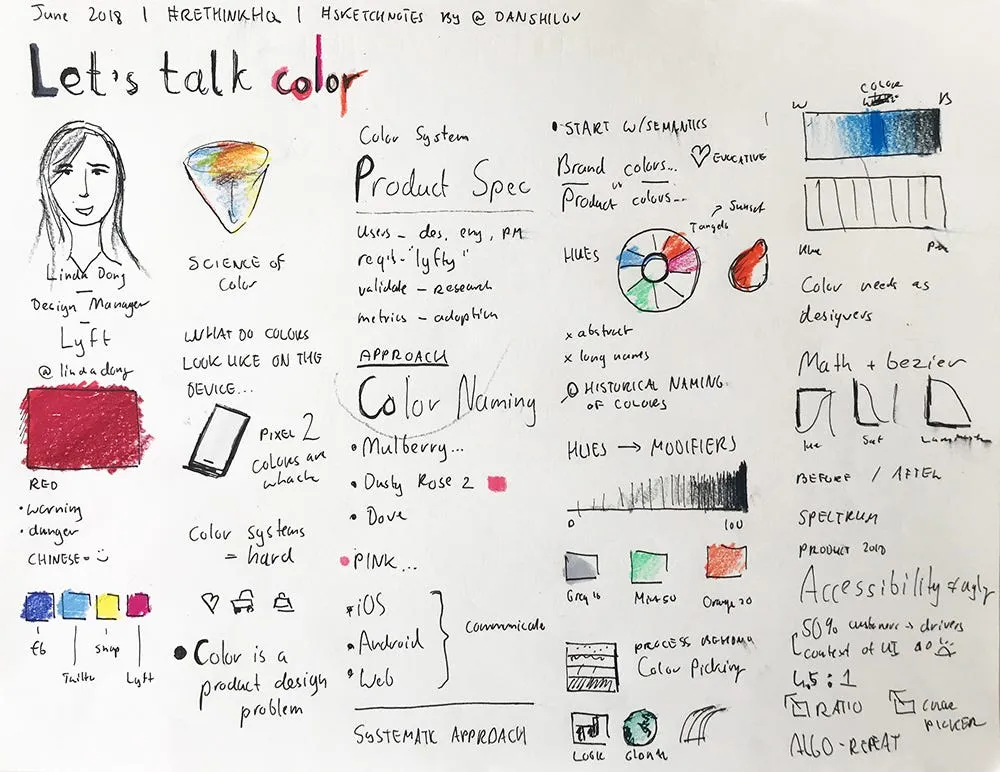 June 2018 | #RETHINKHQ | #SKETCHNOTES BY @DANSHILOV
Let's talk color
Linda Dong
Design Manager
Lyft
@lindadong
RED
• warning
• danger
CHINESE =
fb
Twitter
snap
Lyft
SCIENCE OF
Color
WHAT DO COLORS
LOOK LIKE ON THE
DEVICE...
PIXEL 2
colors are
whack
Color systems
= hard
• Color is a
product design
problem
Color System
Product Spec
users – des, eng, PM
req's - "lyfty"
validate – research
metrics – adoption
APPROACH
Color Naming
• Mulberry...
• Dusty Rose 2
• Dove
• PINK...
• iOS
• Android
• Web
communicate
SYSTEMATIC APPROACH
• START W/SEMANTICS
Brand colors...
EVOCATIVE
vs
Product colours...
Sunset
Tangelo
HUES
x abstract
x long names
HISTORICAL NAMING
OF COLORS
HUES → MODIFIERS
0
100
Grey 10
Mint 50
Orange 70
PROCESS
Color Picking
LOGIC
W
COLOUR
B
Blue
Color needs as
designers
Math + bezier
Hue
Sat
BEFORE / AFTER
SPECTRUM
PRODUCT
Accessibility ≠ ugly
50% customers → drivers
context of UI
4.5 : 1
RATIO
COLOR
PICKER
ALGO - REPEAT